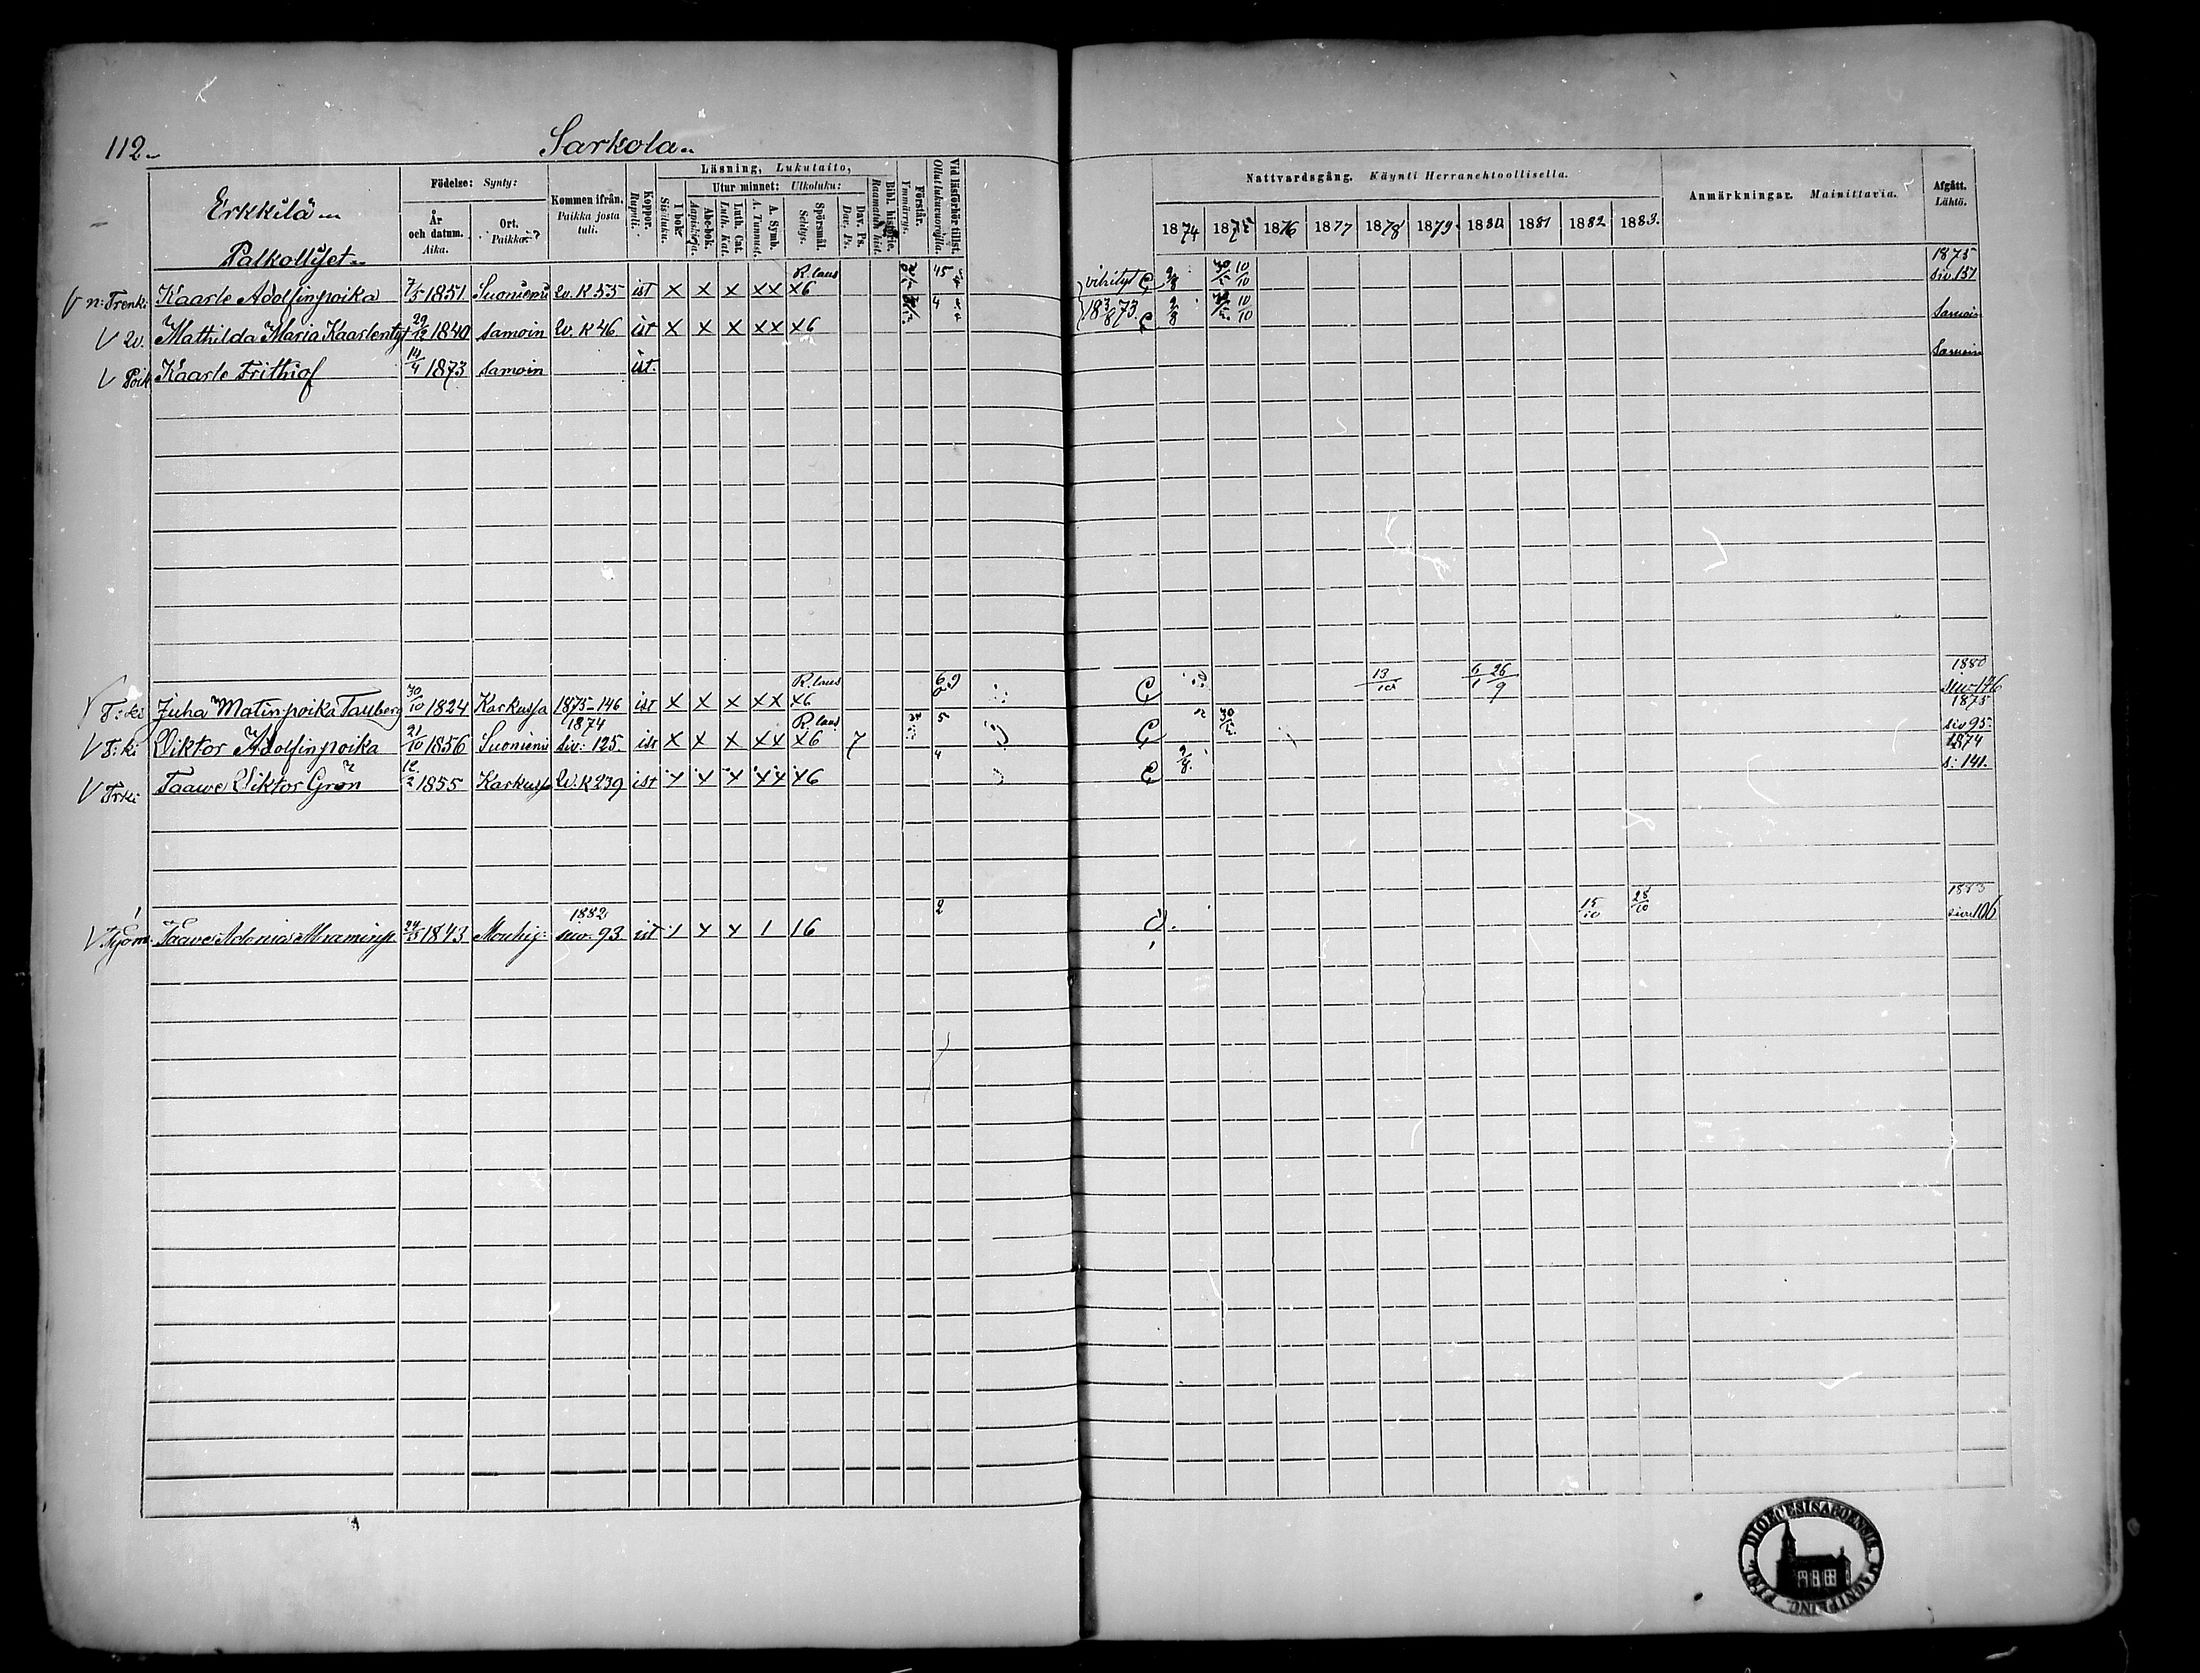 112.
Sarkola
Erkkilä
Palkolliset
Födelse: Synty:
År och datum. Aika.
Ort. Paikka.
Kommen ifrån. Paikka josta tuli.
Koppor. Rupuli.
Läsning, Lukutaito,
I bok. Sisäluku.
Utur minnet: Ulkoluku:
Abc-bok. Aapiskirja.
Luth. Cat. Luth. Kat.
A. Symb. A. Tunnust.
Spörsmål. Selitys.
Dav. Ps. Dav. Ps.
Bibl. historie. Raamatun hist.
Förstår. Ymmärrys.
Vid läsförhör tillst. Ollut lukuvuorolla.
Nattvardsgång. Käynti Herranehtoollisella.
1874 1875 1876 1877 1878 1879 1880 1881 1882 1883.
Anmärkningar. Mainittavia.
Afgått. Lähtö.
n: Trenki Kaarle Adolfinpoika 7/5 1851 Suoniemi W. K 55 ist x x x xx R. laus x6 45 vihityt 2/8 30/5 10/10 1875 siv. 157
W. Mathilda Maria Kaarlentyt 29/12 1840 samoin W. K 46 ist x x x xx x6 4 18 3/8 73. 2/8 10/10 Samoin
Poik Kaarle Frithiof 14/4 1873 samoin ist. Samoin
T: ki Juha Matinpoika Tauberg 30/10 1824 Karkussa 1875-146 ist x x x xx R. laus x6 69 13/10 6/1 26/9 1880 siv 176
T: ki Viktor Adolfinpoika 21/10 1856 Suoniemi 1874 siv: 125. ist x x x xx R. laus x6 7 5 30/5 1875 siv 95.
Trki Taawe Viktor Grön 12/2 1855 Karkussa W. K 239 ist x x x xx x6 4 2/8 1874 s: 141.
Taawe Adonias Abraminp. 24/5 1843 Mouhij: 1882 siv. 93 ist 1 x x 1 16 2 15/10 28/10 1883 siv 106